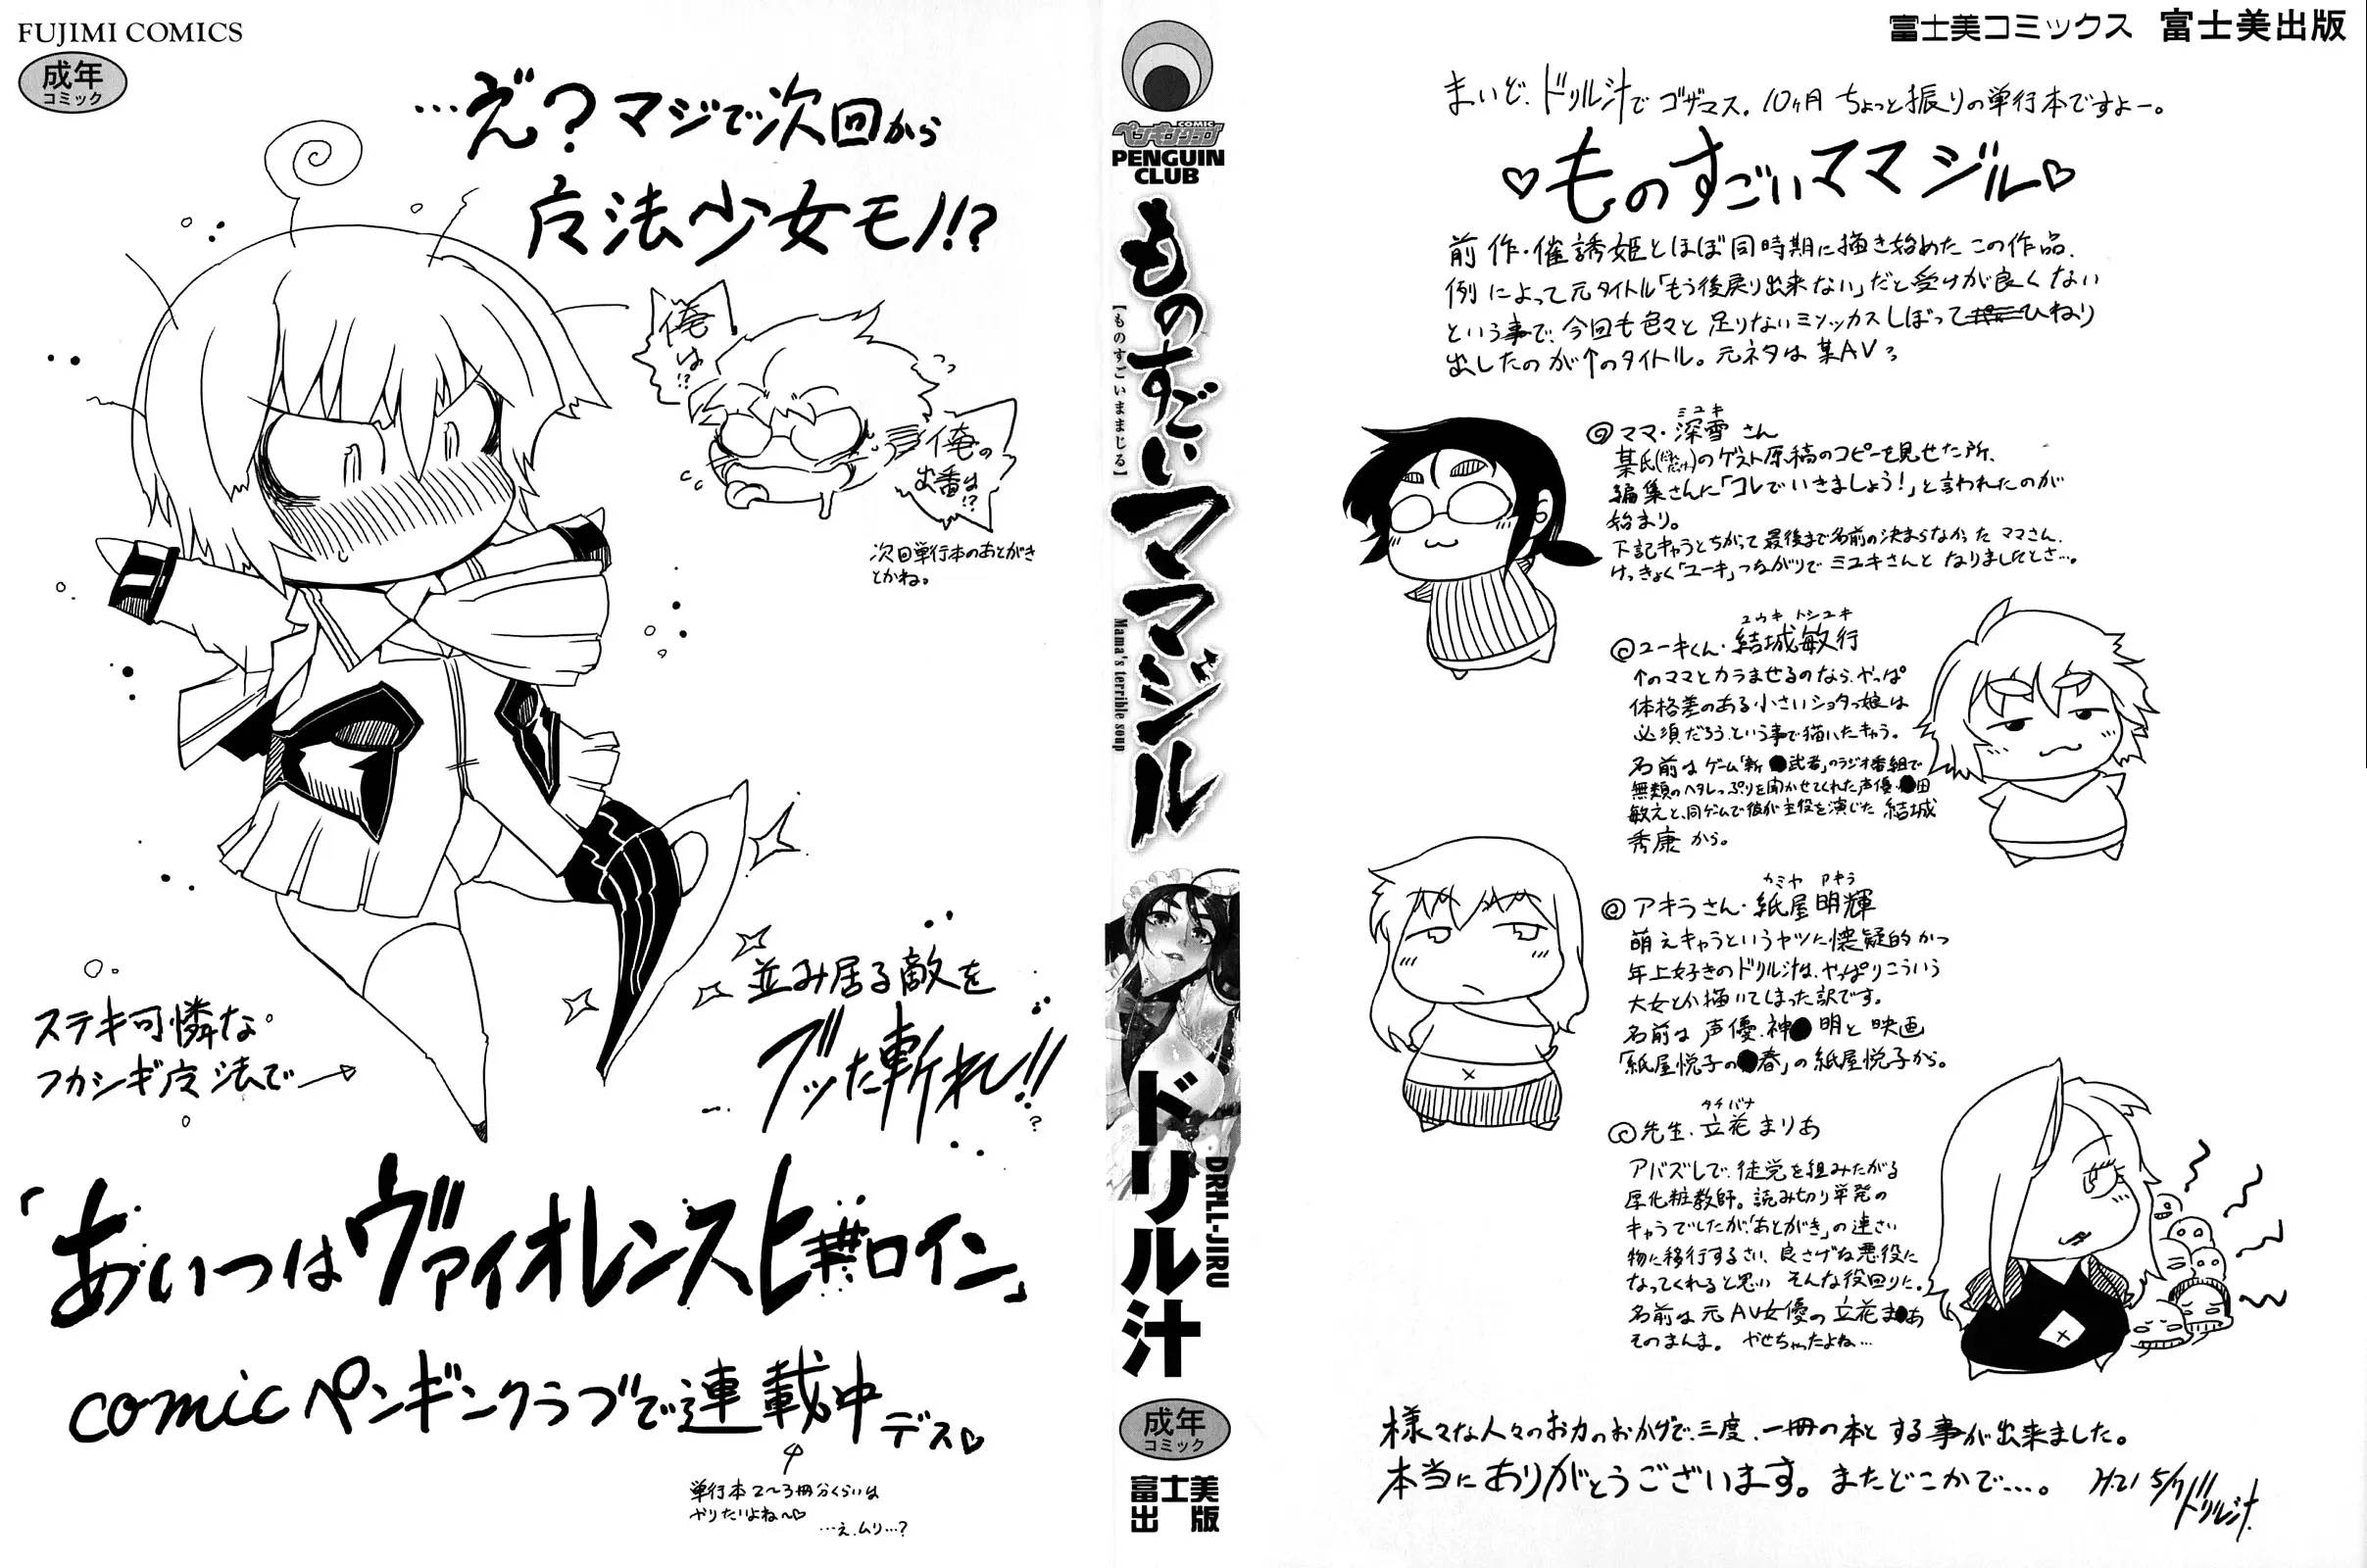 FUJIMI COMICS
成年
コミック
…え゛?マジで次回から
魔法少女モノ!!?
俺は!?
俺の
出番は!?
次回単行本のあとがき
とかね。
ステキ可憐な
フカシギ魔法で
並み居る敵を
ブッた斬れ!!
…?
「あいつはヴァイオレンスヒロイン」
comicペンギンクラブで連載中デス♡
単行本2〜3冊分くらいは
やりたいよね〜♡
…え、ムリ…?
COMIC
ペンギンクラブ
PENGUIN
CLUB
ものすごいママジル
【ものすごいままじる】
Mama's terrible soup
ドリル汁
DRILL-JIRU
成年
コミック
富士美
出版
富士美コミックス 富士美出版
まいど、ドリル汁でゴザマス。10ヶ月ちょっと振りの単行本ですよー。
♡ものすごいママジル♡
前作・催誘姫とほぼ同時期に描き始めたこの作品、
例によって元タイトル「もう後戻り出来ない」だと受けが良くない
という事で、今回も色々と足りないミソッカスしぼってひねり
出したのが↑のタイトル。元ネタは某AV
ママ・深雪さん
ミユキ
某氏のゲスト原稿のコピーを見せた所、
編集さんに「コレでいきましょう!」と言われたのが
始まり。
下記キャラとちがって最後まで名前の決まらなかったママさん。
けっきょく「ユーキ」つながりでミユキさんとなりましたとさ…。
ユウキ トシユキ
ユーキくん・結城敏行
↑のママとカラませるのなら、やっぱ
体格差のある小さいショタっ娘は
必須だろう、という事で描いたキャラ。
名前はゲーム「斬●武者」のラジオ番組で
無類のヘタレっぷりを聞かせてくれた声優・●田
敏えと、同ゲームで彼が主役を演じた結城
秀康から。
カミヤ アキラ
アキラさん・紙屋明輝
萌えキャラというヤツに懐疑的かつ
年上好きのドリル汁は、やっぱりこういう
大女とか描いてしまった訳です。
名前は声優・神●明と映画
「紙屋悦子の●春」の紙屋悦子から。
タチバナ
先生・立花まりあ
アバズレで、徒党を組みたがる
厚化粧教師。読み切り単発の
キャラでしたが、「あとがき」の連さい
物に移行するさい、良さげな悪役に
なってくれると思いそんな役回りに。
名前は元AV女優の立花ま●あ
そのまんま。 やせちゃったよね…
様々な人々のお力のおかげで、三度、一冊の本とする事が出来ました。
本当にありがとうございます。またどこかで…。 H.21 5/7 ドリル汁